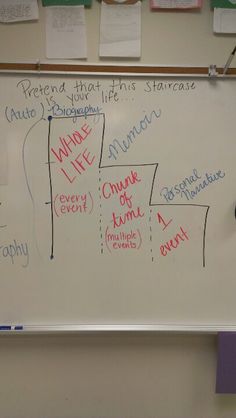 Pretend that this staircase
is your life...
(Auto) Biography
Memoir
Personal
Narrative
WHOLE
LIFE
(every
event)
Chunk
of
time
(multiple
events)
1
event
graphy